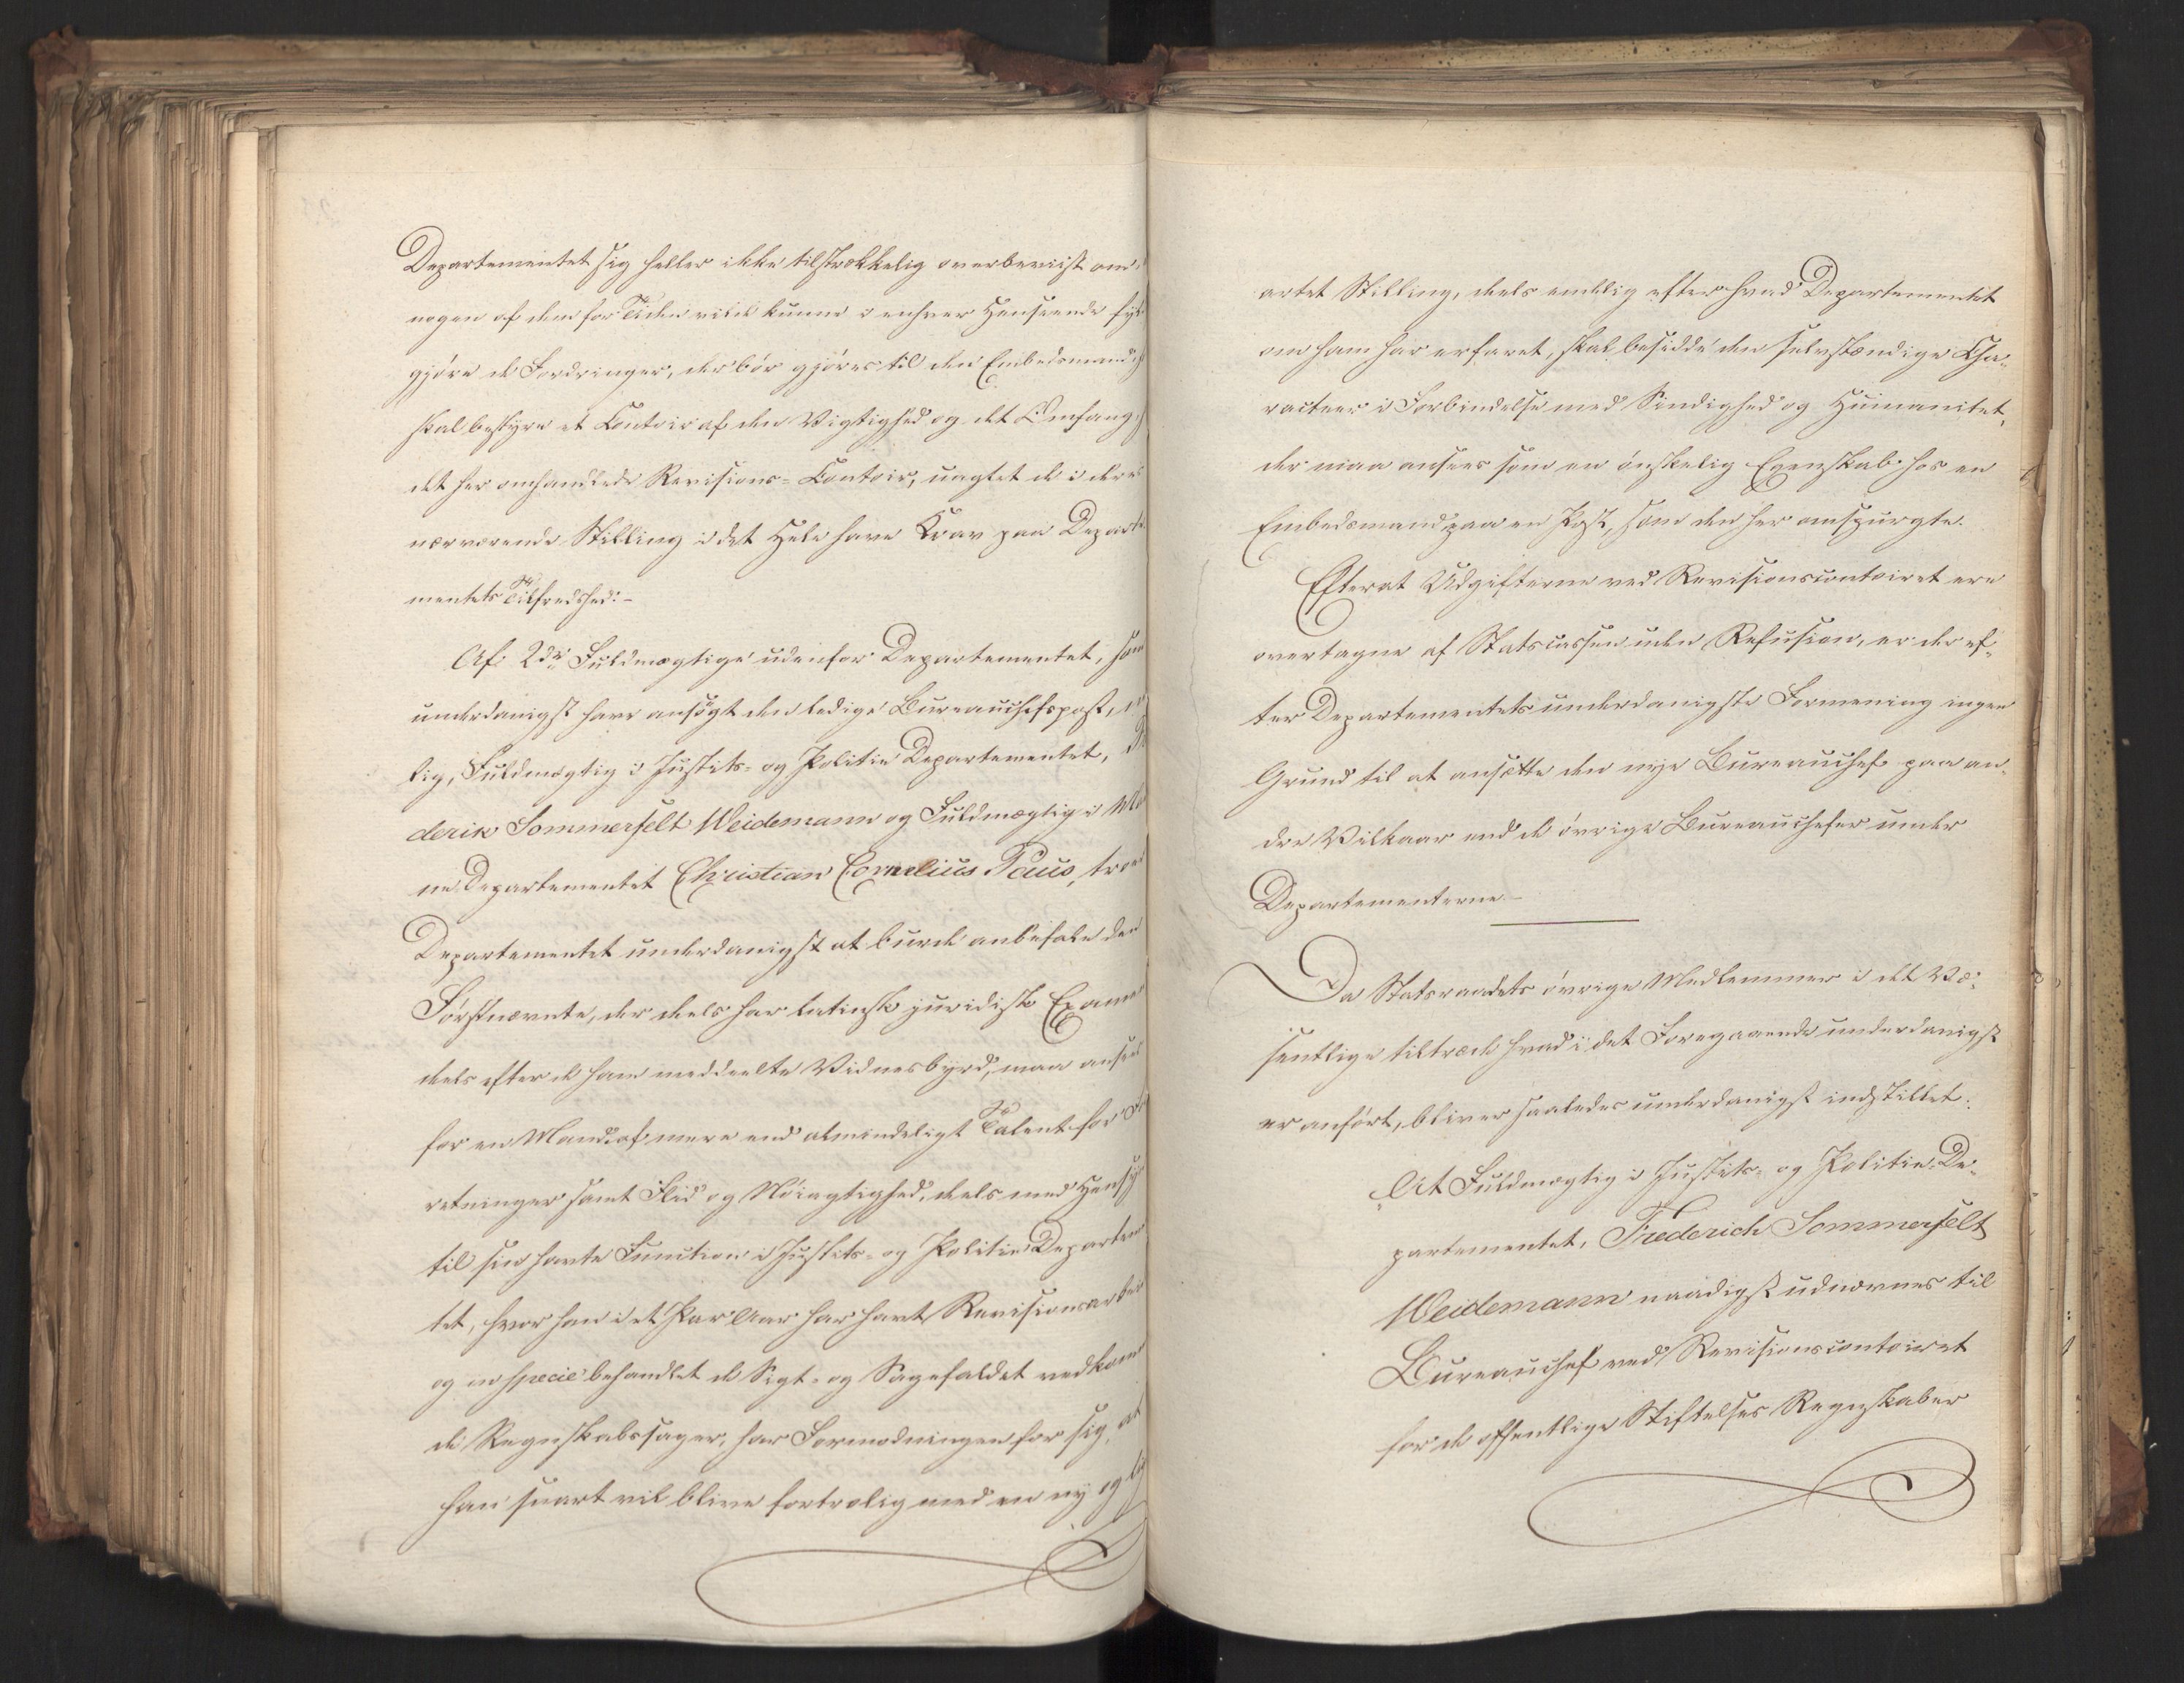 Departementet sig heller ikke tilstrækkelig overbeviist om
nogen af dem for Tiden vilde kunne i enhver Henseende fyl¬
gjøre de Fordringer, der bør gjøres til den Embedsmand,
skal bestyre et Contoir af den Vigtighed og det Omfang,
det her omhandlede Revisions-Contoir, uagtet de i deres
nærværende Stilling i det Hele have Krav paa Departe
mentets Tilfredshed. –
Af 2de Fuldmægtige udenfor Departementet, som
underdanigst have ansøgt den ledige Bureauchefspost,
lig, Fuldmægtig i Justits- og Politie Departementet,
derik Sommerfelt Weidemann og Fuldmægtig i
ne Departementet Christian Cornelius Paus, troer
Departementet underdanigst at burde anbefale den
Førstnævnte, der deels har latinsk juridisk Examen
deels efter de ham meddeelte Vidnesbyrd, maa ansees
for en Mand af mere end almindeligt Talent for
retninger samt Flid og Nøiagtighed, deels med Hensyn
til sin havte Function i Justits- og Politie Departemen
tet, hvor han i et Par Aar har havt Revisionsarbei
og in specie behandlet de Sigt- og Sagefaldet vedkom
de Regnskabssager, har Formodningen for sig, at
han snart vil blive fortrolig med en ny og
artet Stilling, deels endelig efter hvad Departementet
om ham har erfaret, skal besidde den selvstændige Cha¬
racteer i Forbindelse med Sindighed og Humanitet,
der maa ansees som en ønskelig Egenskab hos en
Embedsmand paa en Post, som den her omspurgte.
Efterat Udgifterne ved Revisionscontoiret ere
overtagne af Statscassen uden Refusion, er der ef¬
ter Departementets underdanigste Formening ingen
Grund til at ansætte den nye Bureauchef paa an¬
dre Vilkaar end de øvrige Bureauchefer under
Departementerne –
Da Statsraadets øvrige Medlemmer i det Væ¬
sentlige tiltræde hvad i det Foregaaende underdanigst
er anført, bliver saaledes underdanigst indstillet:
At Fuldmægtig i Justits- og Politie De¬
partementet, Frederich Sommerfelt
Weidemann naadigst udnævnes til
Bureauchef ved Revisionscontoiret
for de offentlige Stiftelses Regnskaber